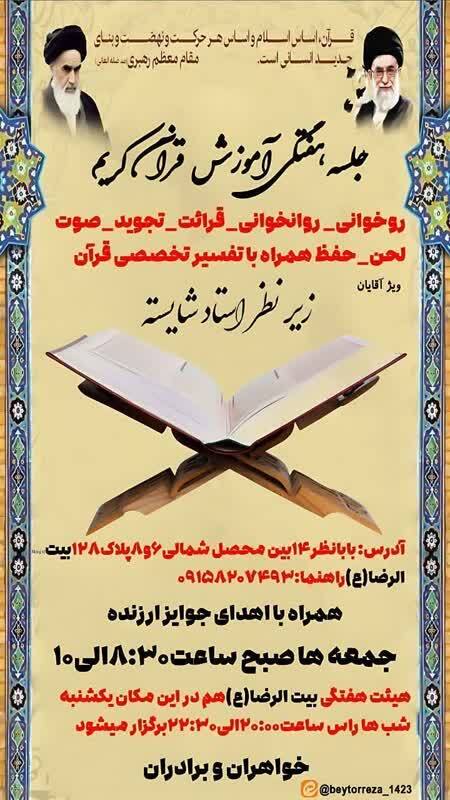 قرآن، اساس اسلام و اساس هر حرکت و نهضت و بنای
جدید انسانی است. مقام معظم رهبری (مد ظله العالی)
جلسه هفتگی آموزش قرآن کریم
روخوانی_ روانخوانی_ قرائت_ تجوید_ صوت
لحن_ حفظ همراه با تفسیر تخصصی قرآن
ویژ آقایان
زیر نظر استاد شایسته
آدرس: بابانظر۱۴بین محصل شمالی۶و۸پلاک۱۲۸بیت
الرضا(ع)راهنما:۰۹۱۵۸۲۰۷۴۹۳
همراه با اهدای جوایز ارزنده
جمعه ها صبح ساعت۸:۳۰الی۱۰
هیئت هفتگی بیت الرضا(ع)هم در این مکان یکشنبه
شب ها راس ساعت۲۰:۰۰الی۲۲:۳۰برگزار میشود
خواهران و برادران
@beytorreza_1423